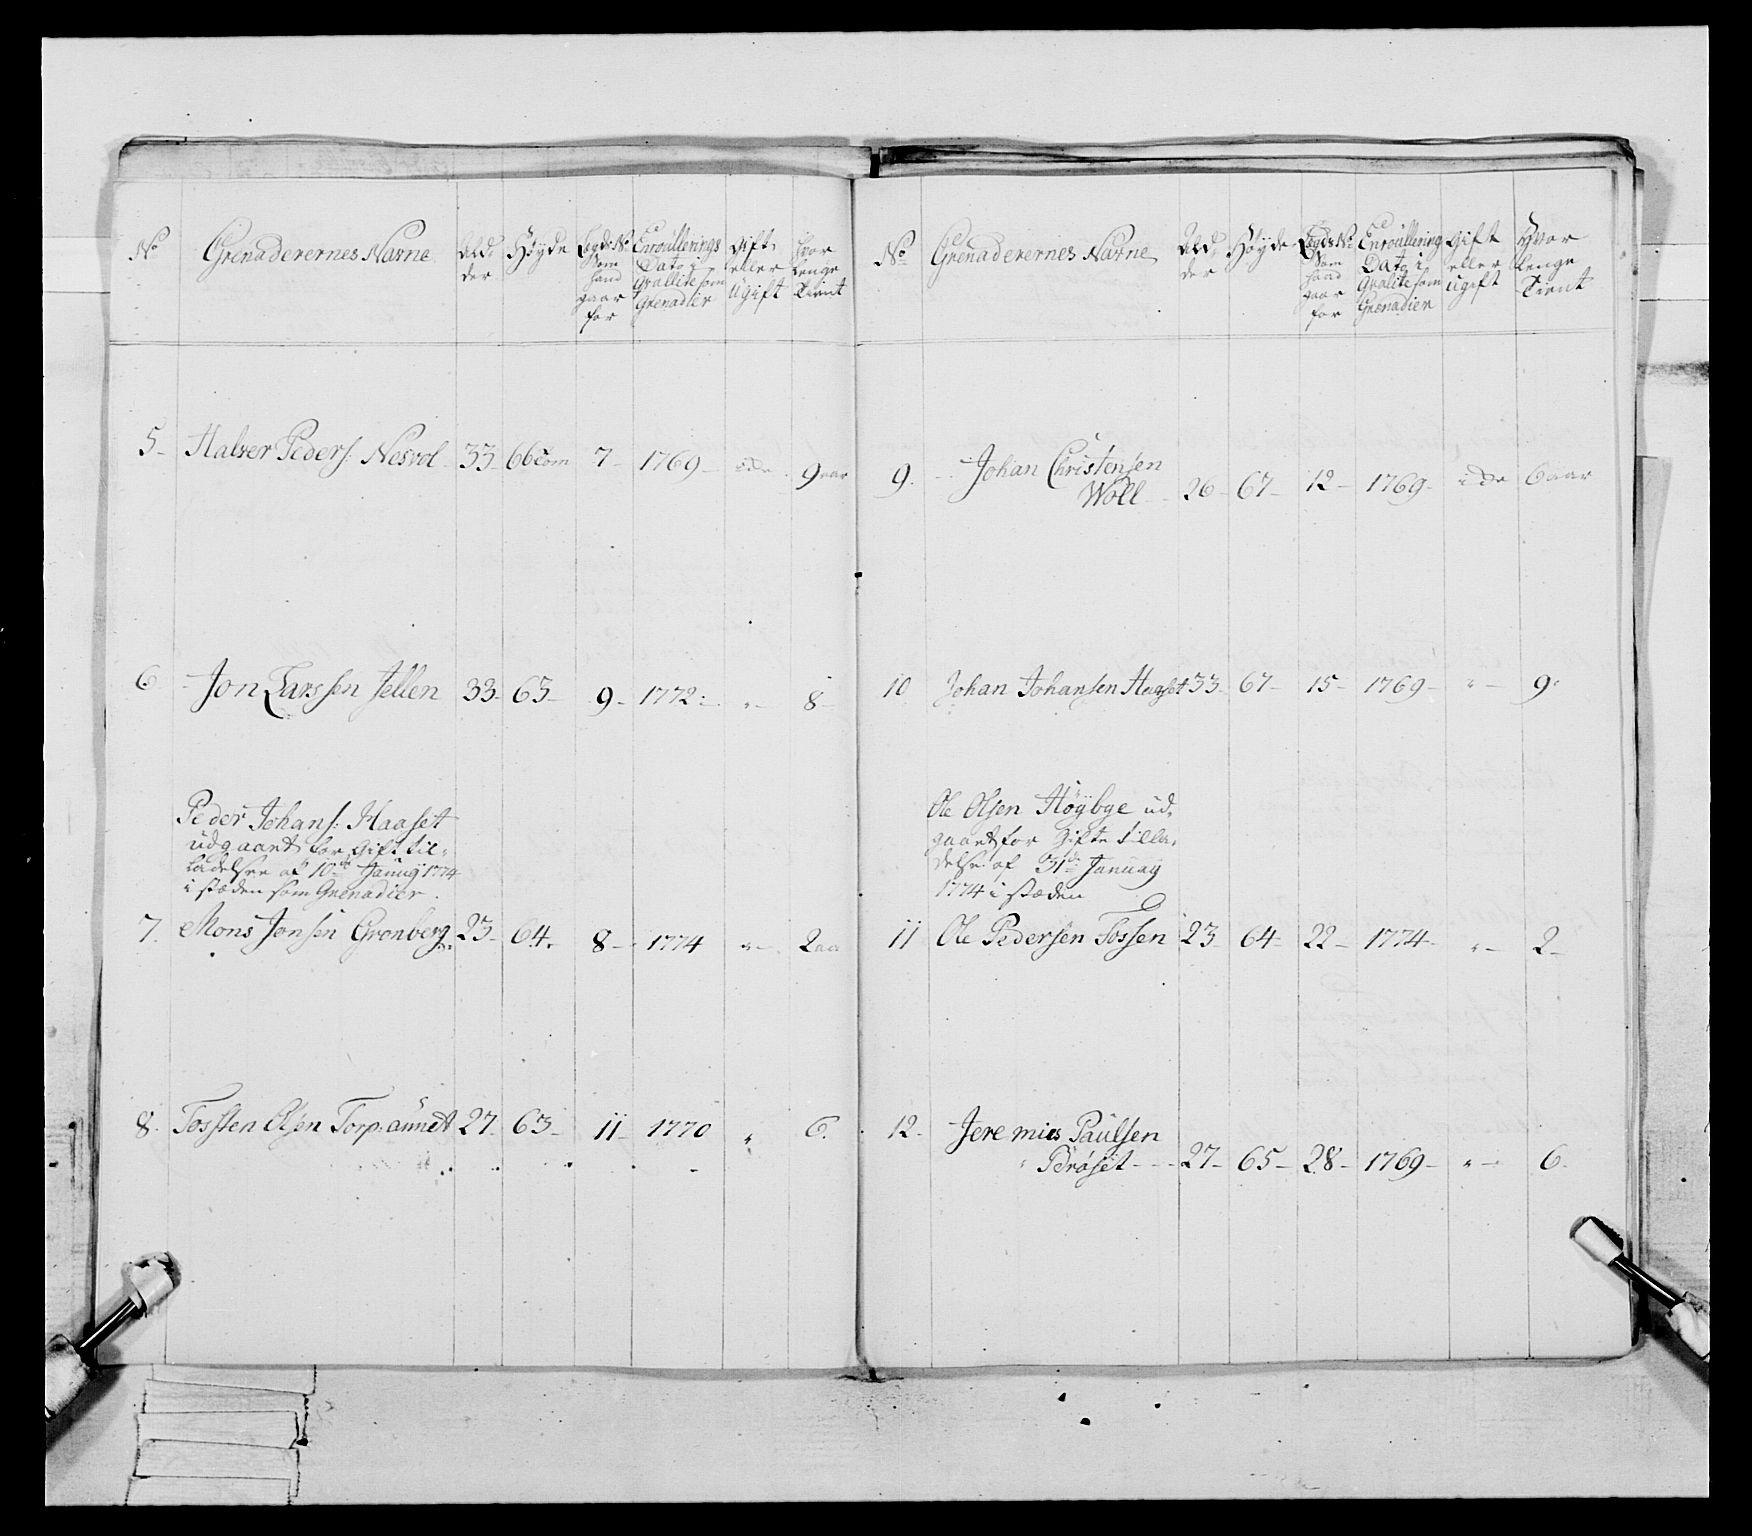 No Grenaderernes Navne Alder Høyde Legds No Som hand gaar for Enroullerings Dato i Qvalite som Grenadier Gift eller Ugift hvor lenge Tient
5 Halver Peders: Nesvol 33 66 tom 7 1769 9 aar
6 Jon Larssen Jellen 33 63 9 1772 " 8
Peder Johans: Haaset
udgaaet for gift til-
ladelse af 10de Janurij 1774
i stæden som Grenadier
7. Mons Jonsen Gronberg 23 64. 8 1774 " 2 aa
8. Tossten Olsen Torp: 27 63 11 1770 " 6.
No Grenaderernes Navne Alder Høyde Legds No Som hand gaar for Enroullering Dato i Qvalite som Grenadier Gift eller ugift Hvor lenge Tient
9. Johan Christensen
Woll 26 67 12 1769 ide 6 aar
10 Johan Johansen Haaset 33 67 15 1769 " 9
Ole Olsen Høybye ud-
gaaet for gifte tilla-
delse af 31de January
1774 i stæden
11 Ole Pedersen Fossen 23 64 22 1774 " 2
12. Jeremies Paulsen
Pérøset 27 65 28 1769 " 6